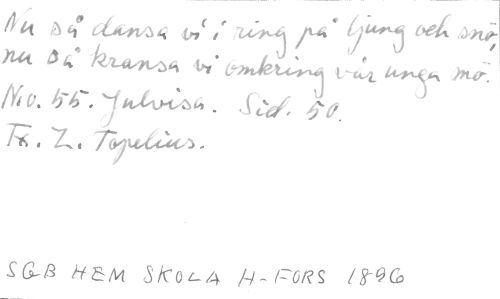 Nu så dansa vi i ring på ljung och snö,
nu så kransa vi omkring vår unga mö.
No. 55. Julvisa. Sid. 50.
Fr. Z. Topelius.
SGB HEM SKOLA H-FORS 1896